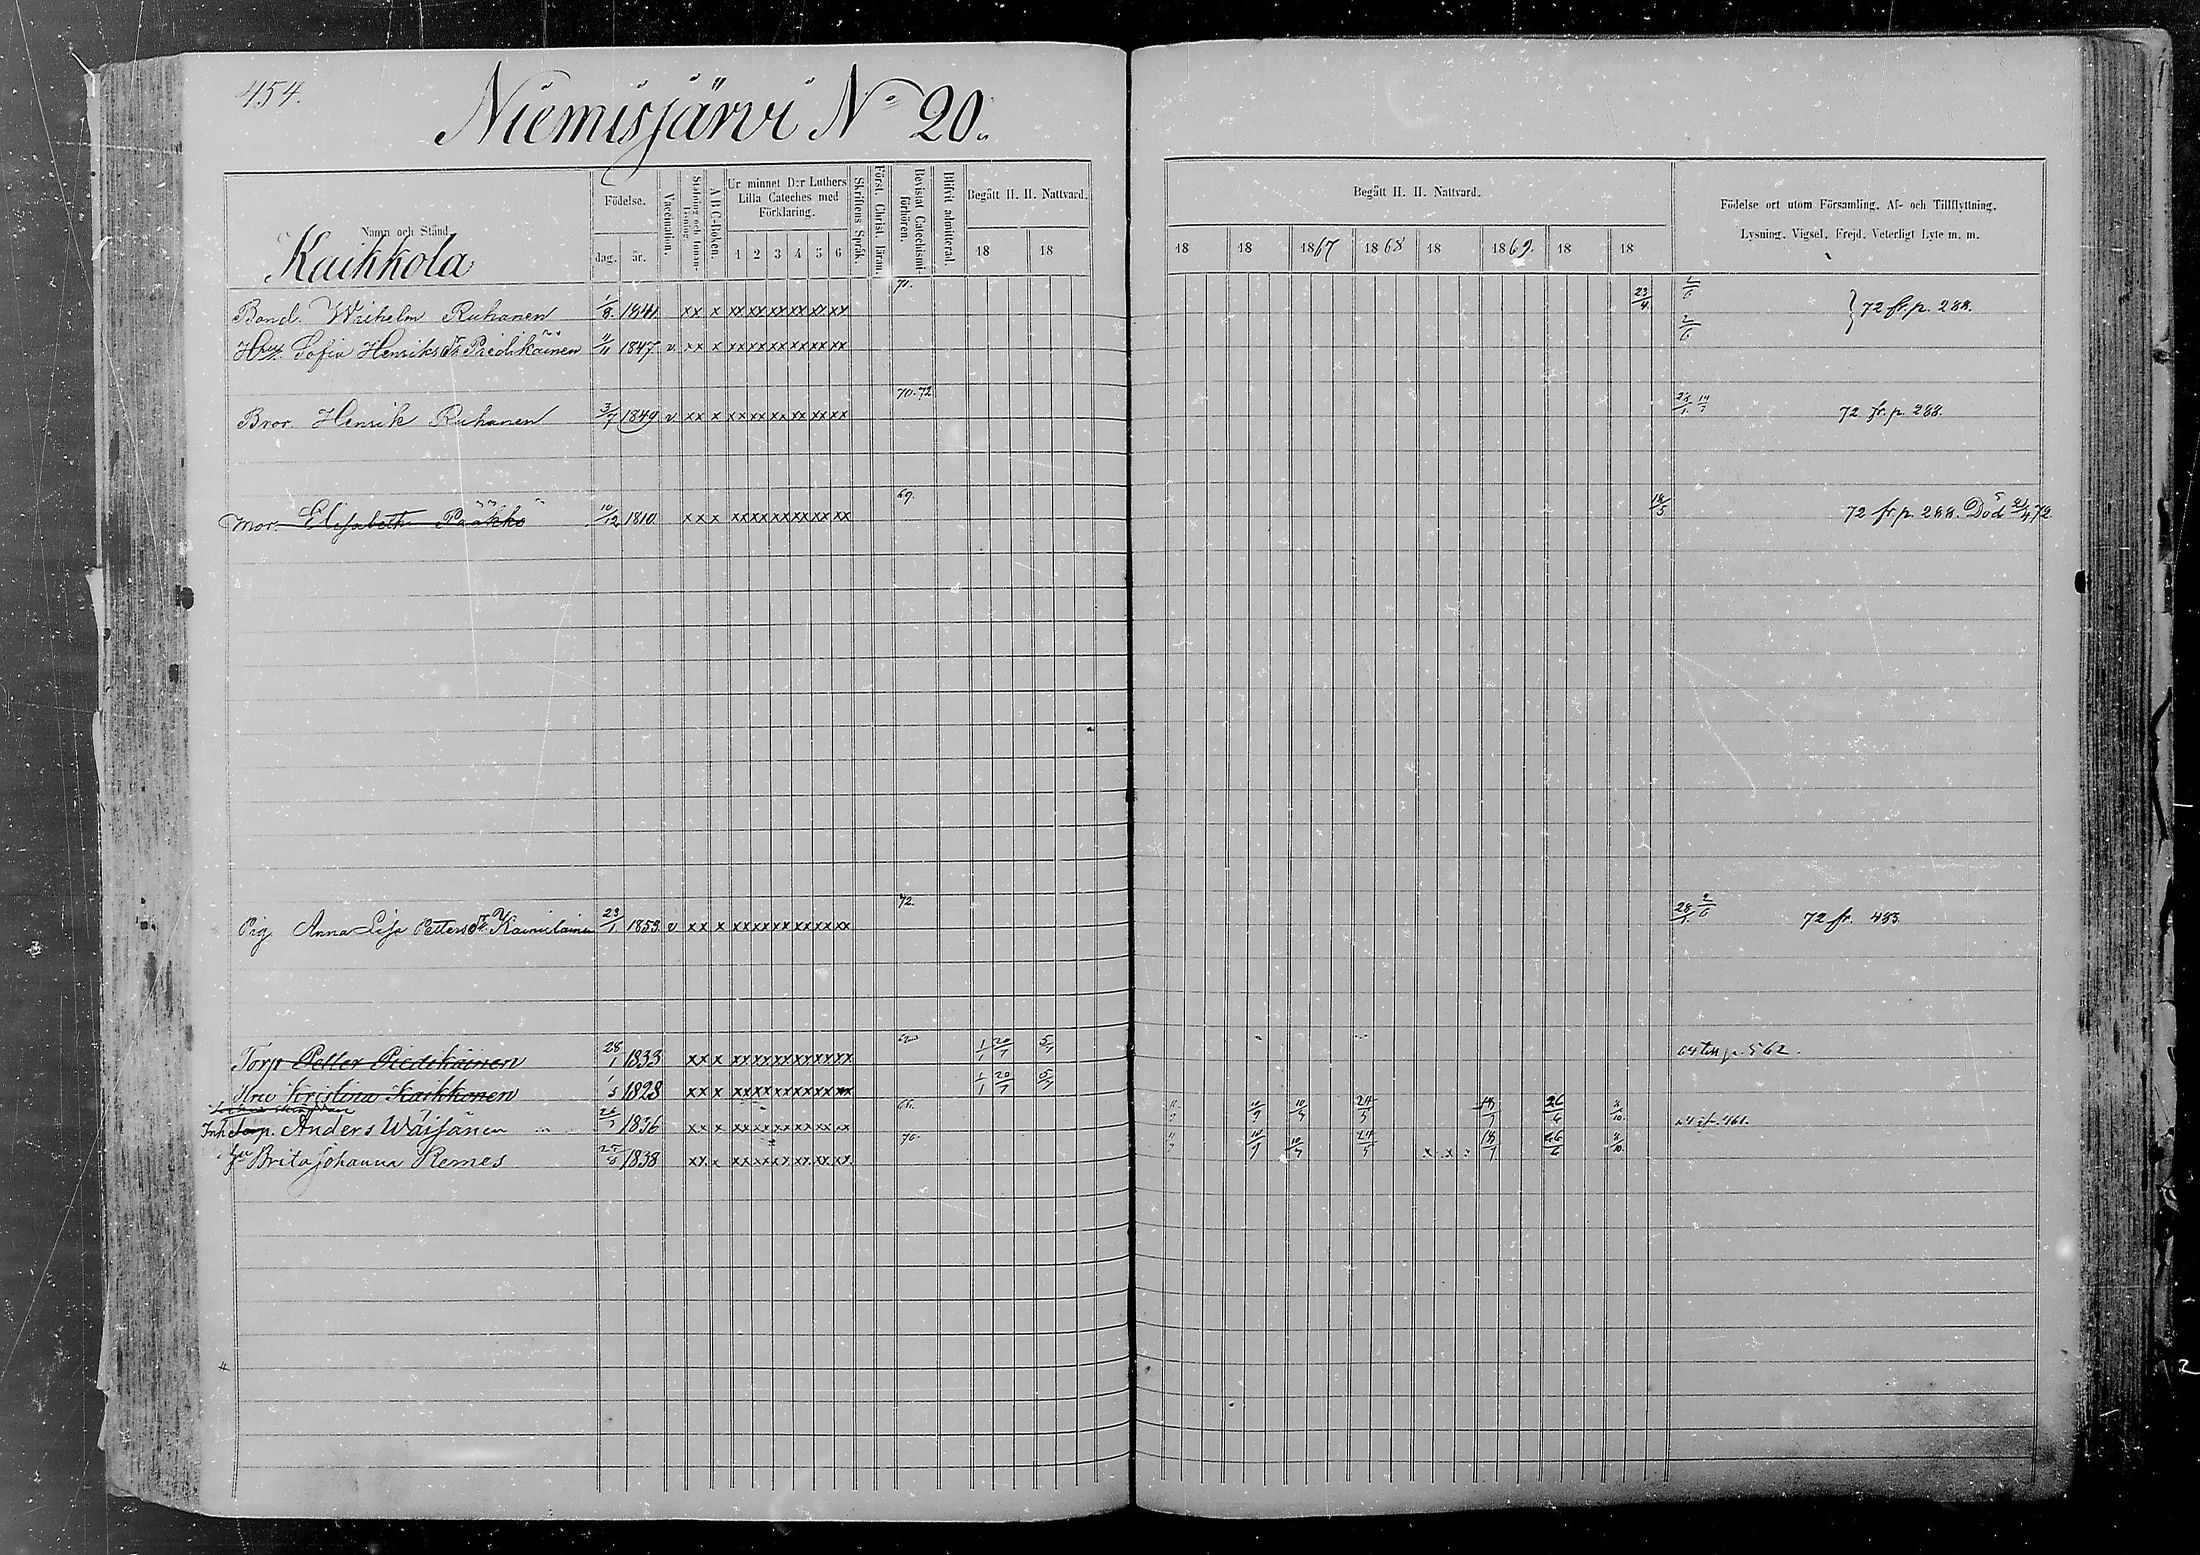 454.
Niemisjärvi No 20.
Namn och Stånd.
Kaikkola
Födelse.
dag. år.
Vaccination.
Stafning och Innanläsning.
A B C-Boken.
Ur minnet D:r Luthers Lilla Cateches med Förklaring.
1 2 3 4 5 6
Skriftens Språk.
Först. Christ. läran.
Bevistat Catechismiförhören.
Blifvit admitterad.
Begått H. H. Nattvard.
18 18
Begått H. H. Nattvard.
18 18 1867 1868 18 1869. 18 18
Födelse ort utom Församling. Af- och Tillflyttning.
Lysning. Vigsel. Frejd. Veterligt Lyte m. m.
Bond. Wilhelm Ruhanen 1/8 1841 xx x xx xx xx xx xx xx 71. 23/4 2/6 } 72 fr. p. 288.
Hu Sofia Henriksdr Piedikäinen 11/11 1847 v xx x xx xx xx xx xx xx 2/6
Bror Henrik Ruhanen 3/7 1849 v xx x xx xx xx xx xx xx 70. 72 28/1 14/7 72 fr. p. 288.
Mor. Elisabeth Pääkkö 10/12 1810 xx x xx xx xx xx xx xx 69. 18/5 72 fr. p. 288. Död /4 72.
Pig Anna Lisa Pettersdr Kainulainen 23/1 1853 v xx x xx xx xx xx xx xx 72. 28/1 2/6 72 fr. 483
Torp Petter Piedikäinen 28/1 1833 xx x xx xx xx xx xx xx 1/1 20/7 5/7 64 till p. 562.
Hru Kristina Kaikkonen 1828 xx x xx xx xx xx xx xx 1/1 20/7 5/7
Inh Torp. Anders Wäisänen 1836 xx x xx xx xx xx xx xx 10/9 10/7 24/5 18/7 26/6 8/10 461.
hu Brita Johanna Remes 1838 xx x xx xx xx xx xx xx 70. 10/9 10/7 24/5 x x 18/7 26/6 8/10